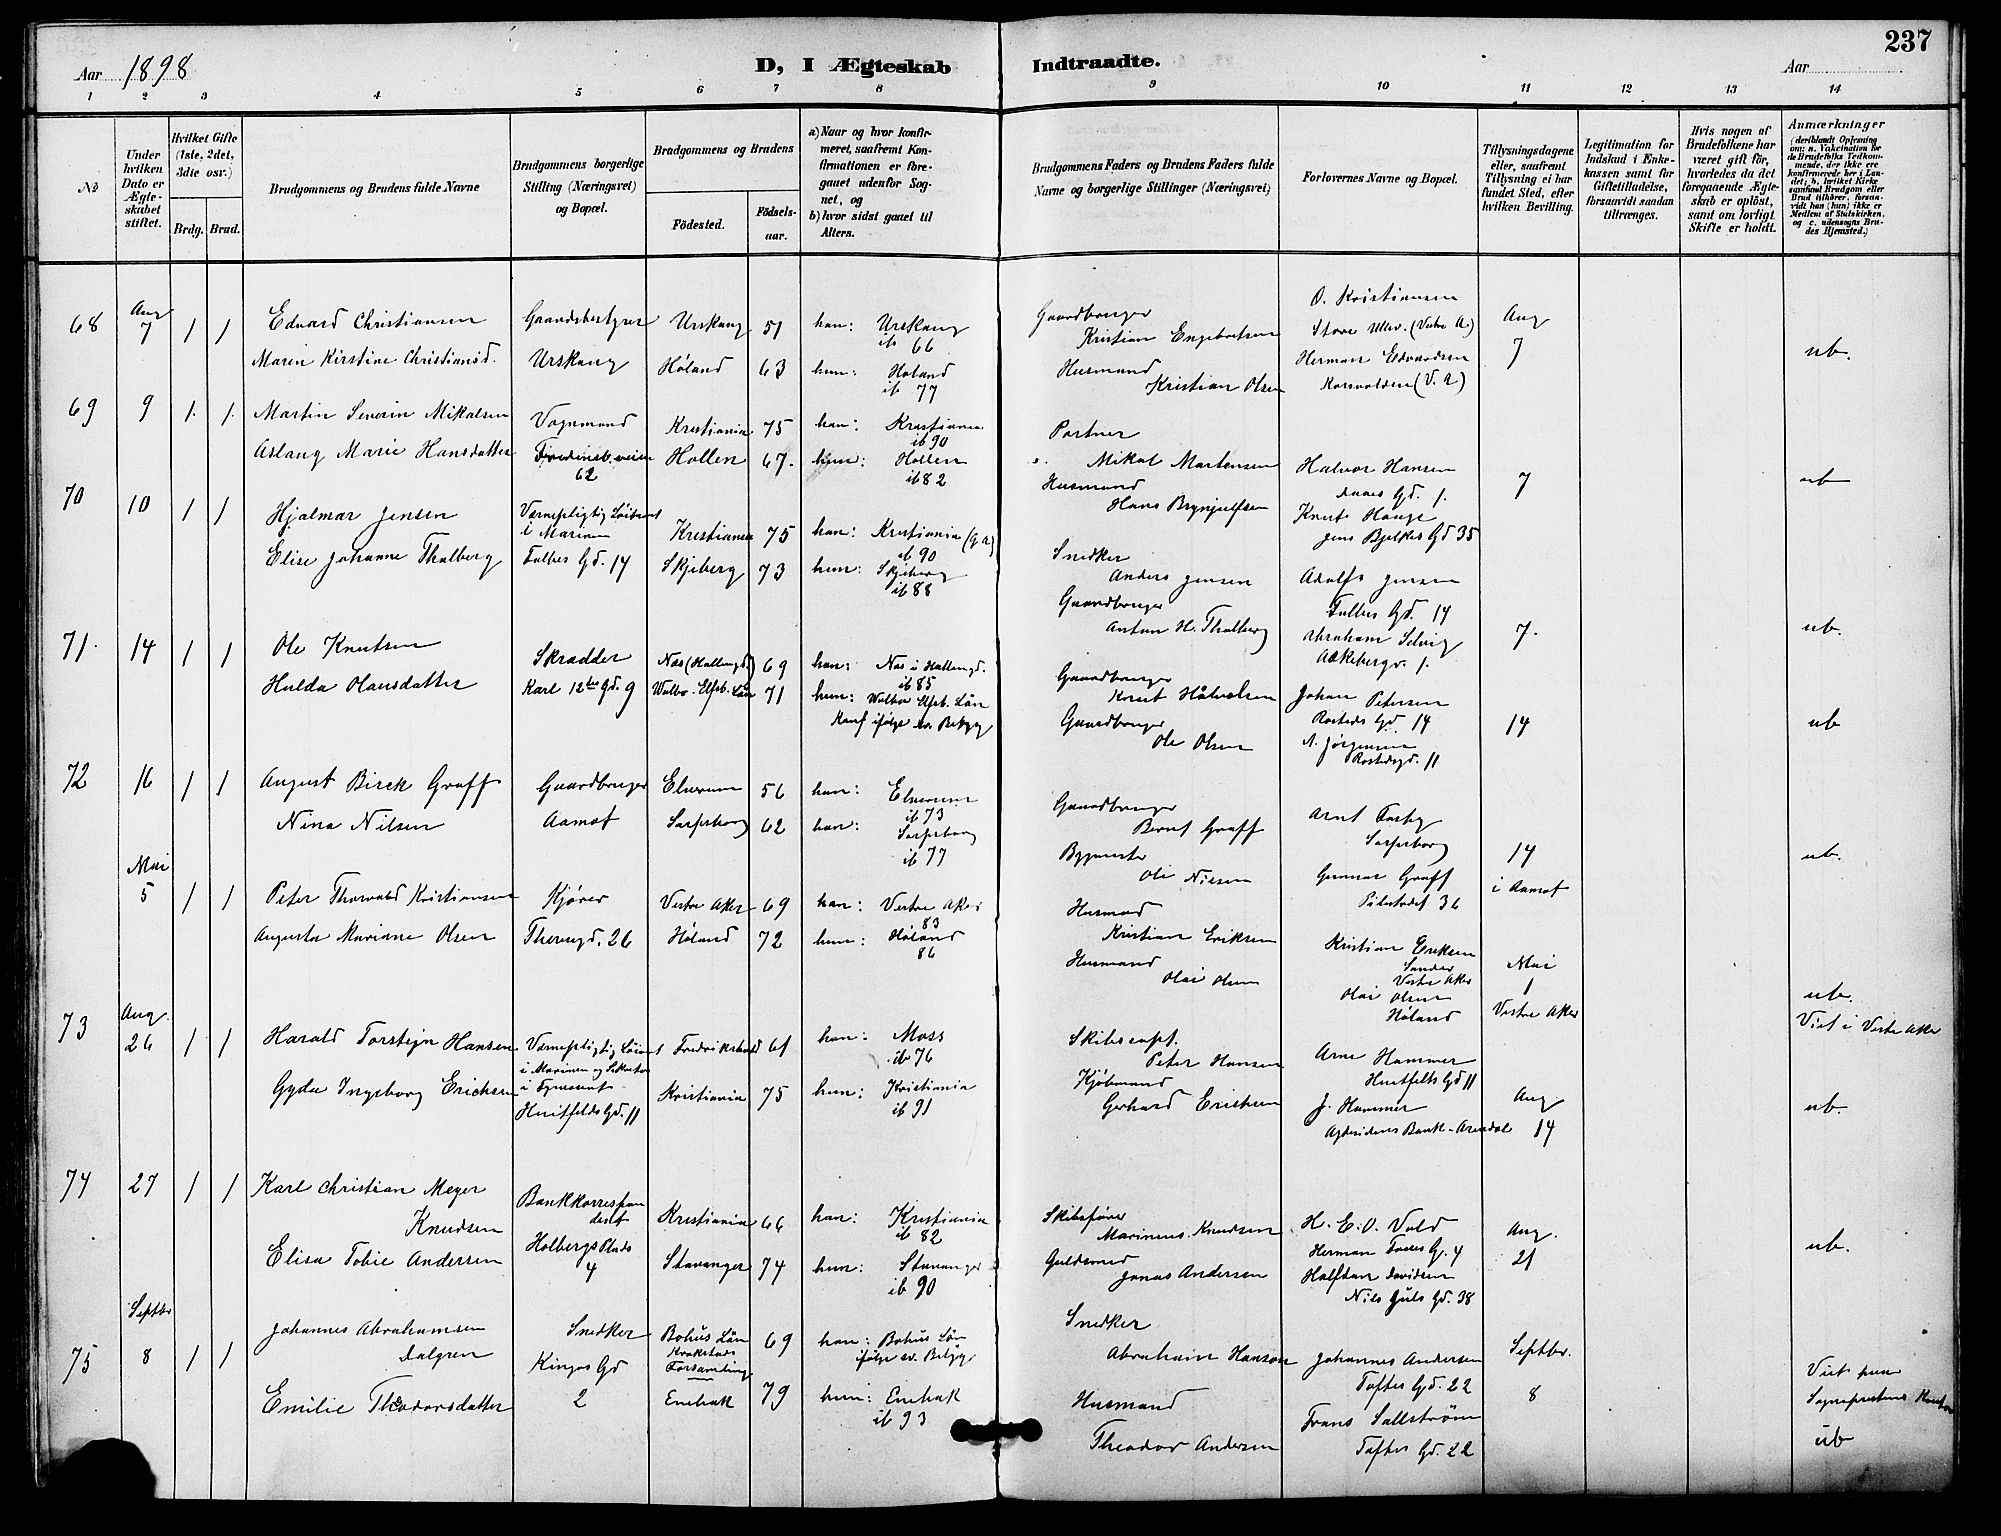 237
Aar 1898
D, I Ægteskab
Indtraadte.
Aar
1 2 3 4 5 6 7 8 9 10 11 12 13 14
No
Under hvilken Dato er Ægteskabet stiftet.
Hvilket Gifte (1ste, 2det, 3die osv.)
Brdg. Brud.
Brudgommens og Brudens fulde Navne
Brudgommens borgerlige Stilling (Næringsvei) og Bopæl.
Brudgommens og Brudens
Fødested.
Fødselsaar.
a) Naar og hvor konfirmeret, saafremt Konfirmationen er foregaaet udenfor Sognet, og
b) hvor sidst gaaet til Alters.
Brudgommens Faders og Brudens Faders fulde Navne og borgerlige Stillinger (Næringsvei)
Forlovernes Navne og Bopæl.
Tillysningsdagene eller, saafremt Tillysning ei har fundet Sted, efter hvilken Bevilling.
Legitimation for Indskud i Enkekassen samt for Giftetilladelse, forsaavidt saadan tiltrænges.
Hvis nogen af Brudefolkene har været gift før, hvorledes da det foregaaende Ægteskab er opløst, samt om lovligt Skifte er holdt.
Anmærkninger
(deriblandt Oplysning om: a. Vakcination for de Brudefolks Vedkommende, der ikke ere konfirmerede her i Landet; b. hvilket Kirkesamfund Brudgom eller Brud tilhører, forsaavidt han (hun) ikke er Medlem af Statskirken, og c. udensogns Brudes Hjemsted.)
68 Aug 7 1 1 Edvard Christiansen Gaardsbestyrer Urskoug 51 han: Urskoug ib 66
Maren Kirstine Christiansd. Urskoug Høland 63 hun: Høland ib 77
Gaardbruger Kristian Engebretsen
Husmand Kristian Olsen
O. Kristiansen
Store Ullev. (Vestre A.)
Herman Edvardsen
(V. A)
Aug 7
ub.
69 9 1. 1. Martin Severin Mikalsen Vognmand Kristiania 75 han: Kristiania ib 90
Aslaug Marie Hansdatter 62 Hollen 67. hun: Hollen ib 82
Portner
Mikal Martensen
Husmand
Hans Brynjulfsen
Halvor Hansen
Gd. 1.
Knut Hauge
Jens Bjelkes Gd 35
7
ub
70 10 1 1 Hjalmar Jensen Værnepligtig Løitnant i Marinen Kristiania 75 han: Kristiania (G A) ib 90
Elise Johanne Thalberg Falbes Gd. 14 Skjeberg 73 hun: Skjeberg ib 88
Snedker
Anders Jensen
Gaardbruger
Anton H. Thalberg
Adolf Jensen
Falbes Gd. 14
Abraham Selvig
Aakebergv. 1.
7.
ub.
71. 14 1 1 Ole Knutsen Skrædder Nas (Hallingd.) 69 han: Nas i Hallingd. ib 85
Hulda Olausdatter Karl 12tes Gd. 9 Walbo. Elfsb. Län 71 hun: Walbo Elfsb. Län
Konf ifølge sv. Betyg
Gaardbruger
Knut Halvalsen
Gaardbruger
Ole Olsen
Johan Petersen
Rosteds Gd. 14
A. Jørgensen
Rostedsgd. 11
14
ub
72 16 1 1 August Birck Graff Gaardbruger Elverum 56 han: Elverum ib 73
Nina Nilsen Aamot Sarpsborg 62 han: Sarpsborg ib 77
Gaardbruger
Bernt Graff
Bygmester
Ole Nilsen
Arnt
Sarpsborg
Gunnar Graff
Pilestrædet 36
14
i Aamot
ub.
Mai 5 1 1 Peter Thorvald Kristiansen Kjører Vestre Aker 69 han: Vestre Aker 83
Augusta Mariane Olsen Thereesgd. 26 Høland 72 hun: Høland 86
Husmand
Kristian Eriksen
Husmand
Olai Olsen
Kristian Eriksen
Sander
Vestre Aker
Olai Olsen
Høland
Mai 1
Vestre Aker
ub.
Viet i Vestre Aker
73 Aug. 26 1 1 Harald Torstejn Hansen Værnepligtig Løitnant i Marinen og Sekretær Fredrikshald 61 han: Moss ib 76
Gyda Ingeborg Erichsen Huitfelds Gd. 11 Kristiania 75 hun: Kristiania ib 91
Skibscapt.
Peter Hansen
Kjøbmand
Gerhard Erichsen
Arne Hammer
Huitfelts Gd 11
J. Hammer
Agdesidens Bank - Arendal
Aug 14
ub.
74 27 1 1 Karl Christian Meyer Knudsen Bankkorrespondent Kristiania 66 han: Kristiania ib 82
Elisa Tobie Andersen Holbergs Plads 4 Stavanger 74 hun: Stavanger ib 90
Skibsfører
Marinius Knudsen
Guldsmed
Jonas Andersen
H. E. O. Vold
Herman Foss G. 4
Halfdan Davidsen
Nils Juls Gd. 38
Aug. 21
ub.
Septbr
75 8 1 1 Johannes Abrahamsen Dalgren Snedker Bohus Län Krokstads Forsamling 69 han: Bohus Län ifølge sv. Betyg
Emilie Theodorsdatter Kingos Gd 2 Enebak 79 hun: Enebak ib 93
Snedker
Abraham Hanson
Husmand
Theodor Andersen
Johannes Andersen
Toftes Gd. 22
Frans Sallstrøm
Toftes Gd. 22
Septbr. 8
Viet paa
Sognepræstens Kontor
ub